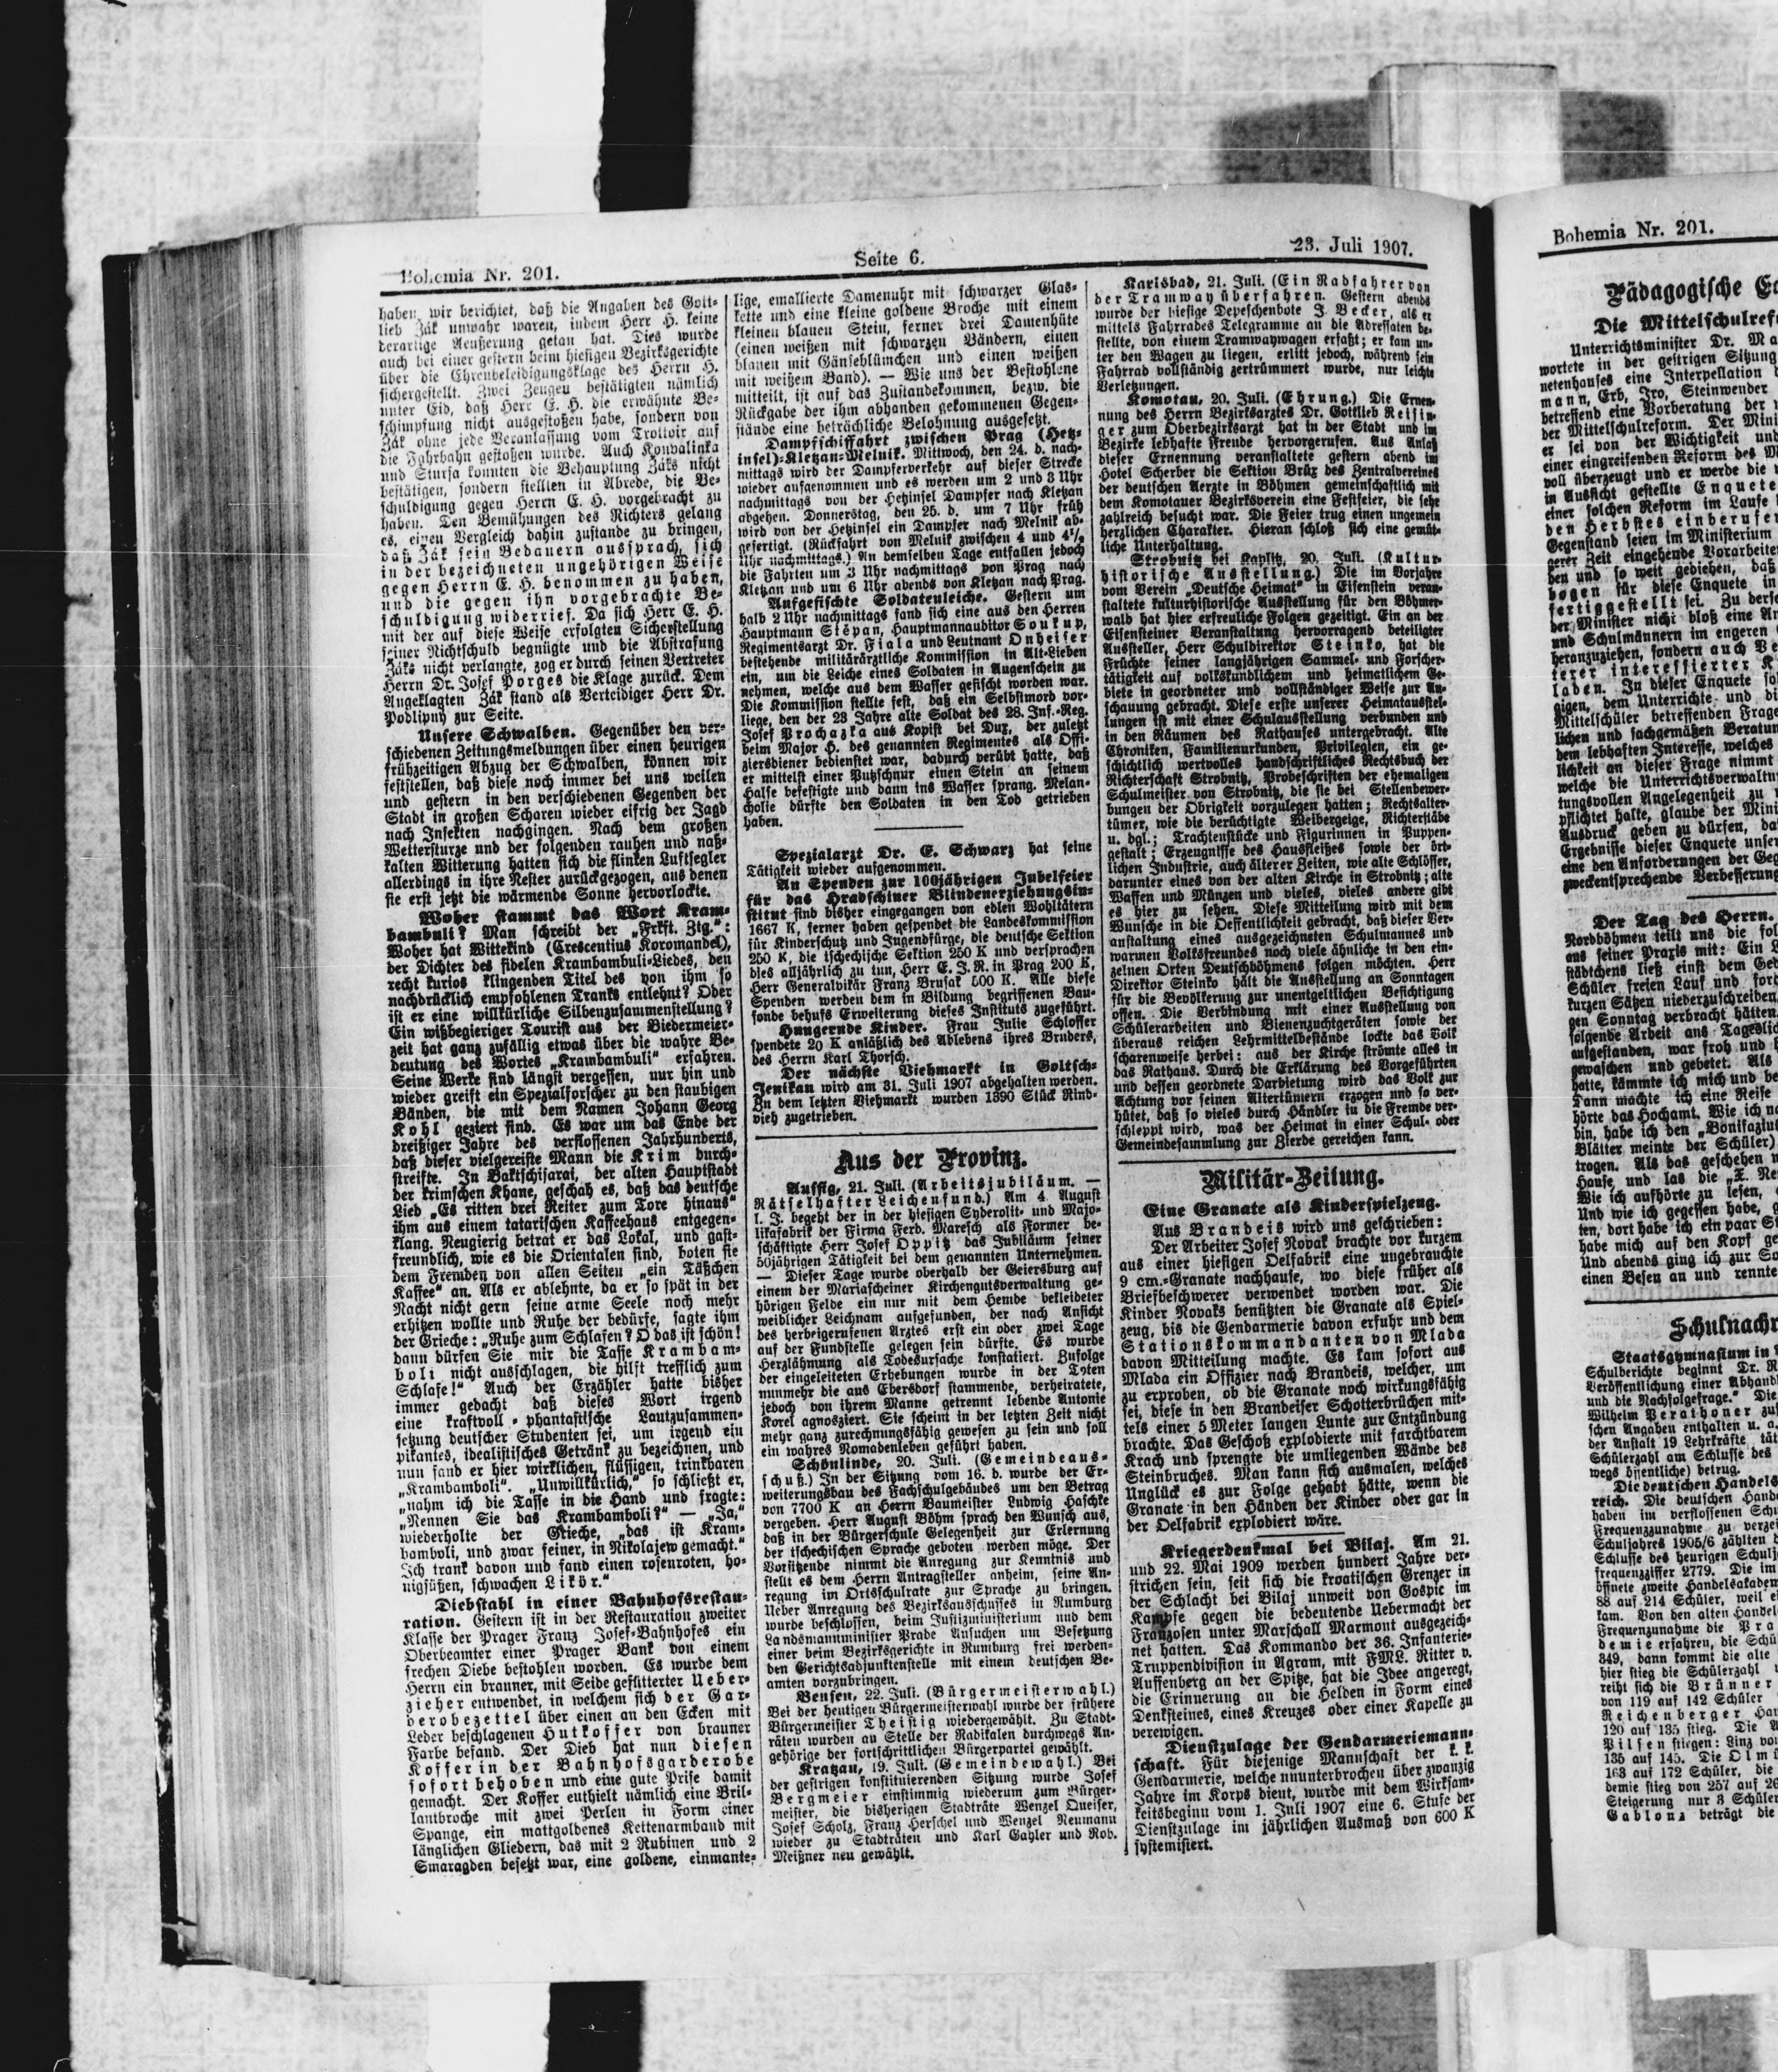 Bohemia Nr. 201.
Seite 6.
23. Juli 1907.
haben, wir berichtet, daß die Angaben des Gott-
lieb Žák unwahr waren, indem Herr H. keine
derartige Aeußerung getan hat. Dies wurde
auch bei einer gestern beim hiesigen Bezirksgerichte
über die Ehrenbeleidigungsklage des Herrn H.
sichergestellt. Zwei Zeugen bestätigten nämlich
unter Eid, daß Herr E. H. die erwähnte Be-
schimpfung nicht ausgestoßen habe, sondern von
Žák ohne jede Veranlassung vom Trottoir auf
die Fahrbahn gestoßen wurde. Auch Koubalinka
und Stursa konnten die Behauptung Žáks nicht
bestätigen, sondern stellten in Abrede, die Be-
schuldigung gegen Herrn E. H. vorgebracht zu
haben. Den Bemühungen des Richters gelang
es, einen Vergleich dahin zustande zu bringen,
daß Žák sein Bedauern aussprach, sich
in der bezeichneten ungehörigen Weise
gegen Herrn E. H. benommen zu haben,
und die gegen ihn vorgebrachte Be-
schuldigung widerrief. Da sich Herr E. H.
mit der auf diese Weise erfolgten Sicherstellung
seiner Nichtschuld begnügte und die Abstrafung
Žáks nicht verlangte, zog er durch seinen Vertreter
Herrn Dr. Josef Porges die Klage zurück. Dem
Angeklagten Žák stand als Verteidiger Herr Dr.
Podlipny zur Seite.
Unsere Schwalben. Gegenüber den ver-
schiedenen Zeitungsmeldungen über einen heurigen
frühzeitigen Abzug der Schwalben, können wir
feststellen, daß diese noch immer bei uns weilen
und gestern in den verschiedenen Gegenden der
Stadt in großen Scharen wieder eifrig der Jagd
nach Insekten nachgingen. Nach dem großen
Wettersturze und der folgenden rauhen und naß-
kalten Witterung hatten sich die flinken Luftsegler
allerdings in ihre Nester zurückgezogen, aus denen
sie erst jetzt die wärmende Sonne hervorlockte.
Woher stammt das Wort Kram-
bambuli? Man schreibt der „Frkft. Ztg.“:
Woher hat Wittekind (Crescentius Koromandel),
der Dichter des fidelen Krambambuli-Liedes, den
recht kurios klingenden Titel des von ihm so
nachdrücklich empfohlenen Tranks entlehnt? Oder
ist er eine willkürliche Silbenzusammenstellung?
Ein wißbegieriger Tourist aus der Biedermeier-
zeit hat ganz zufällig etwas über die wahre Be-
deutung des Wortes „Krambambuli“ erfahren.
Seine Werke sind längst vergessen, nur hin und
wieder greift ein Spezialforscher zu den staubigen
Bänden, die mit dem Namen Johann Georg
Kohl geziert sind. Es war um das Ende der
dreißiger Jahre des verflossenen Jahrhunderts,
daß dieser vielgereiste Mann die Krim durch-
streifte. In Baktschisarai, der alten Hauptstadt
der krimschen Khane, geschah es, daß das deutsche
Lied „Es ritten drei Reiter zum Tore hinaus“
ihm aus einem tatarischen Kaffeehaus entgegen-
klang. Neugierig betrat er das Lokal, und gast-
freundlich, wie es die Orientalen sind, boten sie
dem Fremden von allen Seiten „ein Täßchen
Kaffee“ an. Als er ablehnte, da er so spät in der
Nacht nicht gern seine arme Seele noch mehr
erhitzen wollte und Ruhe der bedürfe, sagte ihm
der Grieche: „Ruhe zum Schlafen? O das ist schön!
dann dürfen Sie mir die Tasse Krambam-
boli nicht ausschlagen, die hilft trefflich zum
Schlafe!“ Auch der Erzähler hatte bisher
immer gedacht daß dieses Wort irgend
eine kraftvoll-phantastische Lautzusammen-
setzung deutscher Studenten sei, um irgend ein
pikantes, idealistisches Getränk zu bezeichnen, und
nun fand er hier wirklichen, flüssigen, trinkbaren
„Krambamboli“. „Unwillkürlich,“ so schließt er,
„nahm ich die Tasse in die Hand und fragte:
„Nennen Sie das Krambamboli?“ — „Ja,“
wiederholte der Grieche, „das ist Kram-
bamboli, und zwar feiner, in Nikolajew gemacht.“
Ich trank davon und fand einen rosenroten, ho-
nigsüßen, schwachen Likör.“
Diebstahl in einer Bahnhofsrestau-
ration. Gestern ist in der Restauration zweiter
Klasse der Prager Franz Josef-Bahnhofes ein
Oberbeamter einer Prager Bank von einem
frechen Diebe bestohlen worden. Es wurde dem
Herrn ein brauner, mit Seide gefütterter Ueber-
zieher entwendet, in welchem sich der Gar-
derobezettel über einen an den Ecken mit
Leder beschlagenen Hutkoffer von brauner
Farbe befand. Der Dieb hat nun diesen
Koffer in der Bahnhofsgarderobe
sofort behoben und eine gute Prise damit
gemacht. Der Koffer enthielt nämlich eine Bril-
lantbroche mit zwei Perlen in Form einer
Spange, ein mattgoldenes Kettenarmband mit
länglichen Gliedern, das mit 2 Rubinen und 2
Smaragden besetzt war, eine goldene, einmante-
lige, emallierte Damenuhr mit schwarzer Glas-
kette und eine kleine goldene Broche mit einem
kleinen blauen Stein, ferner drei Damenhüte
(einen weißen mit schwarzen Bändern, einen
blauen mit Gänseblümchen und einen weißen
mit weißem Band). — Wie uns der Bestohlene
mitteilt, ist auf das Zustandekommen, bezw. die
Rückgabe der ihm abhanden gekommenen Gegen-
stände eine beträchliche Belohnung ausgesetzt.
Dampfschiffahrt zwischen Prag (Hetz-
insel)-Kletzan-Melnik. Mittwoch, den 24. d. nach-
mittags wird der Dampferverkehr auf dieser Strecke
wieder aufgenommen und es werden um 2 und 3 Uhr
nachmittags von der Hetzinsel Dampfer nach Kletzan
abgehen. Donnerstag, den 25. d. um 7 Uhr früh
wird von der Hetzinsel ein Dampfer nach Melnik ab-
gefertigt. (Rückfahrt von Melnik zwischen 4 und 4½
Uhr nachmittags.) An demselben Tage entfallen jedoch
die Fahrten um 3 Uhr nachmittags von Prag nach
Kletzan und um 6 Uhr abends von Kletzan nach Prag.
Aufgefischte Soldatenleiche. Gestern um
halb 2 Uhr nachmittags fand sich eine aus den Herren
Hauptmann Stěpan, Hauptmannauditor Soukup,
Regimentsarzt Dr. Fiala und Leutnant Onheiser
bestehende militärärztliche Kommission in Alt-Lieben
ein, um die Leiche eines Soldaten in Augenschein zu
nehmen, welche aus dem Wasser gefischt worden war.
Die Kommission stellte fest, daß ein Selbstmord vor-
liege, den der 23 Jahre alte Soldat des 28. Inf.-Reg.
Josef Prochazka aus Kopist bei Dux, der zuletzt
beim Major H. des genannten Regimentes als Offi-
ziersdiener bedienstet war, dadurch verübt hatte, daß
er mittelst einer Putzschnur einen Stein an seinem
Halse befestigte und dann ins Wasser sprang. Melan-
cholie dürfte den Soldaten in den Tod getrieben
haben.
Spezialarzt Dr. E. Schwarz hat seine
Tätigkeit wieder aufgenommen.
An Spenden zur 100jährigen Jubelfeier
für das Hradschiner Blindenerziehungsin-
stitut sind bisher eingegangen von edlen Wohltätern
1667 K, ferner haben gespendet die Landeskommission
für Kinderschutz und Jugendfürge, die deutsche Sektion
250 K, die tschechische Sektion 250 K und versprachen
dies alljährlich zu tun, Herr E. J. R. in Prag 200 K,
Herr Generalvikär Franz Brusak 500 K. Alle diese
Spenden werden dem in Bildung begriffenen Bau-
fonde behufs Erweiterung dieses Instituts zugeführt.
Hungernde Kinder. Frau Julie Schlosser
spendete 20 K anläßlich des Ablebens ihres Bruders,
des Herrn Karl Thorsch.
Der nächste Viehmarkt in Goltsch-
Jenikau wird am 31. Juli 1907 abgehalten werden.
Zu dem letzten Viehmarkt wurden 1390 Stück Rind-
vieh zugetrieben.
Aus der Provinz.
Aussig, 21. Juli. (Arbeitsjubiläum. —
Rätselhafter Leichenfund.) Am 4. August
l. J. begeht der in der hiesigen Syderolit- und Majo-
likafabrik der Firma Ferd. Maresch als Former be-
schäftigte Herr Josef Oppitz das Jubiläum seiner
50jährigen Tätigkeit bei dem genannten Unternehmen.
— Dieser Tage wurde oberhalb der Geiersburg auf
einem der Mariascheiner Kirchengutsverwaltung ge-
hörigen Felde ein nur mit dem Hemde bekleideter
weiblicher Leichnam aufgefunden, der nach Ansicht
des herbeigerufenen Arztes erst ein oder zwei Tage
auf der Fundstelle gelegen sein dürfte. Es wurde
Herzlähmung als Todesursache konstatiert. Zufolge
der eingeleiteten Erhebungen wurde in der Toten
nunmehr die aus Ebersdorf stammende, verheiratete,
jedoch von ihrem Manne getrennt lebende Antonie
Korel agnosziert. Sie scheint in der letzten Zeit nicht
mehr ganz zurechnungsfähig gewesen zu sein und soll
ein wahres Nomadenleben geführt haben.
Schönlinde, 20. Juli. (Gemeindeaus-
schuß.) In der Sitzung vom 16. d. wurde der Er-
weiterungsbau des Fachschulgebäudes um den Betrag
von 7700 K an Herrn Baumeister Ludwig Haschke
vergeben. Herr August Böhm sprach den Wunsch aus,
daß in der Bürgerschule Gelegenheit zur Erlernung
der tschechischen Sprache geboten werden möge. Der
Vorsitzende nimmt die Anregung zur Kenntnis und
stellt es dem Herrn Antragsteller anheim, seine An-
regung im Ortsschulrate zur Sprache zu bringen.
Ueber Anregung des Bezirksausschusses in Rumburg
wurde beschlossen, beim Justizministerium und dem
Landsmannminister Prade Ansuchen um Besetzung
einer beim Bezirksgerichte in Rumburg frei werden-
den Gerichtsadjunktenstelle mit einem deutschen Be-
amten vorzubringen.
Bensen, 22. Juli. (Bürgermeisterwahl.)
Bei der heutigen Bürgermeisterwahl wurde der frühere
Bürgermeister Theistig wiedergewählt. Zu Stadt-
räten wurden an Stelle der Radikalen durchwegs An-
gehörige der fortschrittlichen Bürgerpartei gewählt.
Kratzau, 19. Juli. (Gemeindewahl.) Bei
der gestrigen konstituierenden Sitzung wurde Josef
Bergmeier einstimmig wiederum zum Bürger-
meister, die bisherigen Stadträte Wenzel Queiser,
Josef Scholz, Franz Herschel und Wenzel Neumann
wieder zu Stadträten und Karl Gahler und Rob.
Meißner neu gewählt.
Karlsbad, 21. Juli. (Ein Radfahrer von
der Tramway überfahren. Gestern abends
wurde der hiesige Depeschenbote J. Becker, als er
mittels Fahrrades Telegramme an die Adressaten be-
stellte, von einem Tramwaywagen erfaßt; er kam un-
ter den Wagen zu liegen, erlitt jedoch, während sein
Fahrrad vollständig zertrümmert wurde, nur leichte
Verletzungen.
Komotau, 20. Juli. (Ehrung.) Die Ernen-
nung des Herrn Bezirksarztes Dr. Gottlieb Reisin-
ger zum Oberbezirksarzt hat in der Stadt und im
Bezirke lebhafte Freude hervorgerufen. Aus Anlaß
dieser Ernennung veranstaltete gestern abend im
Hotel Scherber die Sektion Brüx des Zentralvereines
der deutschen Aerzte in Böhmen gemeinschaftlich mit
dem Komotauer Bezirksverein eine Festfeier, die sehr
zahlreich besucht war. Die Feier trug einen ungemein
herzlichen Charakter. Hieran schloß sich eine gemüt-
liche Unterhaltung.
Strobnitz bei Kaplitz, 20. Juli. (Kultur-
historische Ausstellung.) Die im Vorjahre
vom Verein „Deutsche Heimat“ in Eisenstein veran-
staltete kulturhistorische Ausstellung für den Böhmer-
wald hat hier erfreuliche Folgen gezeitigt. Ein an der
Eisensteiner Veranstaltung hervorragend beteiligter
Aussteller, Herr Schuldirektor Steinko, hat die
Früchte seiner langjährigen Sammel- und Forscher-
tätigkeit auf volkskundlichem und heimatlichem Ge-
biete in geordneter und vollständiger Weise zur An-
schauung gebracht. Diese erste unserer Heimatausstel-
lungen ist mit einer Schulausstellung verbunden und
in den Räumen des Rathauses untergebracht. Alte
Chroniken, Familienurkunden, Privilegien, ein ge-
schichtlich wertvolles handschriftliches Rechtsbuch der
Richterschaft Strobnitz, Probeschriften der ehemaligen
Schulmeister von Strobnitz, die sie bei Stellenbewer-
bungen der Obrigkeit vorzulegen hatten; Rechtsalter-
tümer, wie die berüchtigte Weibergeige, Richterstäbe
u. dgl.; Trachtenstücke und Figurinnen in Puppen-
gestalt; Erzeugnisse des Hausfleißes sowie der ört-
lichen Industrie, auch älterer Zeiten, wie alte Schlösser,
darunter eines von der alten Kirche in Strobnitz; alte
Waffen und Münzen und vieles, vieles andere gibt
es hier zu sehen. Diese Mitteilung wird mit dem
Wunsche in die Oeffentlichkeit gebracht, daß dieser Ver-
anstaltung eines ausgezeichneten Schulmannes und
warmen Volksfreundes noch viele ähnliche in den ein-
zelnen Orten Deutschböhmens folgen möchten. Herr
Direktor Steinko hält die Ausstellung an Sonntagen
für die Bevölkerung zur unentgeltlichen Besichtigung
offen. Die Verbindung mit einer Ausstellung von
Schülerarbeiten und Bienenzuchtgeräten sowie der
überaus reichen Lehrmittelbestände lockte das Volk
scharenweise herbei: aus der Kirche strömte alles in
das Rathaus. Durch die Erklärung des Vorgeführten
und dessen geordnete Darbietung wird das Volk zur
Achtung vor seinen Altertümern erzogen und so ver-
hütet, daß so vieles durch Händler in die Fremde ver-
schleppt wird, was der Heimat in einer Schul- oder
Gemeindesammlung zur Zierde gereichen kann.
Militär-Zeitung.
Eine Granate als Kinderspielzeug.
Aus Brandeis wird uns geschrieben:
Der Arbeiter Josef Novak brachte vor kurzem
aus einer hiesigen Oelfabrik eine ungebrauchte
9 cm.-Granate nachhause, wo diese früher als
Briefbeschwerer verwendet worden war. Die
Kinder Novaks benützten die Granate als Spiel-
zeug, bis die Gendarmerie davon erfuhr und dem
Stationskommandanten von Mlada
davon Mitteilung machte. Es kam sofort aus
Mlada ein Offizier nach Brandeis, welcher, um
zu erproben, ob die Granate noch wirkungsfähig
sei, diese in den Brandeiser Schotterbrüchen mit-
tels einer 5 Meter langen Lunte zur Entzündung
brachte. Das Geschoß explodierte mit farchtbarem
Krach und sprengte die umliegenden Wände des
Steinbruches. Man kann sich ausmalen, welches
Unglück es zur Folge gehabt hätte, wenn die
Granate in den Händen der Kinder oder gar in
der Oelfabrik explodiert wäre.
Kriegerdenkmal bei Bilaj. Am 21.
und 22. Mai 1909 werden hundert Jahre ver-
strichen sein, seit sich die kroatischen Grenzer in
der Schlacht bei Bilaj unweit von Gospic im
Kampfe gegen die bedeutende Uebermacht der
Franzosen unter Marschall Marmont ausgezeich-
net hatten. Das Kommando der 36. Infanterie-
Truppendivision in Agram, mit FML. Ritter v.
Auffenberg an der Spitze, hat die Idee angeregt,
die Erinnerung an die Helden in Form eines
Denksteines, eines Kreuzes oder einer Kapelle zu
verewigen.
Dienstzulage der Gendarmeriemann-
schaft. Für diejenige Mannschaft der k. k.
Gendarmerie, welche ununterbrochen über zwanzig
Jahre im Korps dient, wurde mit dem Wirksam-
keitsbeginn vom 1. Juli 1907 eine 6. Stufe der
Dienstzulage im jährlichen Ausmaß von 600 K
systemisiert.
Bohemia Nr. 201.
Pädagogische
Die Mittelschulref
Unterrichtsminister Dr. Ma
wortete in der gestrigen Sitzung
netenhauses eine Interpellation
mann, Erb, Iro, Steinwender
betreffend eine Vorberatung der
der Mittelschulreform. Der Mini
er sei von der Wichtigkeit und
einer eingreifenden Reform des M
voll überzeugt und er werde die
in Aussicht gestellte Enquete
einer solchen Reform im Laufe
den Herbstes einberufen
Gegenstand seien im Ministerium
gerer Zeit eingehende Vorarbeiten
den und so weit gediehen, daß
bogen für diese Enquete in
fertiggestellt sei. Zu derse
der Minister nicht bloß eine An
und Schulmännern im engeren
heranzuziehen, sondern auch Ve
terer interessierter K
laden. In dieser Enquete so
gigen, dem Unterrichte und di
Mittelschüler betreffenden Frage
lichen und sachgemäßen Beratun
dem lebhaften Interesse, welches
lichkeit an dieser Frage nimmt
welche die Unterrichtsverwaltu
tungsvollen Angelegenheit zu
pflichtet halte, glaube der Mini
Ausdruck geben zu dürfen, da
Ergebnisse dieser Enquete unser
eine den Anforderungen der Geg
zweckentsprechende Verbesserung
Der Tag des Herrn.
Nordböhmen teilt uns die fol
aus seiner Praxis mit: Ein L
städtchens ließ einst dem Ged
Schüler freien Lauf und ford
kurzen Sätzen niederzuschreiben,
gen Sonntag verbracht hätten.
folgende Arbeit ans Tageslic
aufgestanden, war froh und
gewaschen und gebetet. Als
hatte, kämmte ich mich und be
Dann machte ich eine Reise
hörte das Hochamt. Wie ich na
bin, habe ich den „Bonifaziu
Blätter meinte der Schüler)
tragen. Als das geschehen
Hause, und las die „X. Ne
Wie ich aufhörte zu lesen,
Und wie ich gegessen habe, g
ten, dort habe ich ein paar St
habe mich auf den Kopf ge
Und abends ging ich zur So
einen Besen an und rennte
Schulnachr
Staatsgymnasium in
Schulberichte beginnt Dr. R
Veröffentlichung einer Abhand
und die Nachfolgefrage.“ Die
Wilhelm Perathoner zuf
schen Angaben enthalten u. a.
der Anstalt 19 Lehrkräfte tät
Schülerzahl am Schlusse des
wegs öffentliche) betrug.
Die deutschen Handels
reich. Die deutschen Hande
haben im verflossenen Schu
Frequenzzunahme zu verzei
Schuljahres 1905/6 zählten
Schlusse des heurigen Schulj
frequenzziffer 2779. Die im
öffnete zweite Handelsakadem
88 auf 214 Schüler, weil ei
kam. Von den alten Handel
Frequenzunahme die Pra
demie erfahren, die Schü
349, dann kommt die alte
hier stieg die Schülerzahl
reiht sich die Brünner
von 119 auf 142 Schüler
Reichenberger Han
120 auf 135 stieg. Die A
Pilsen stiegen: Linz von
135 auf 145. Die Olmü
163 auf 172 Schüler, die
demie stieg von 257 auf 26
Steigerung nur 3 Schüler
Gablonz beträgt die